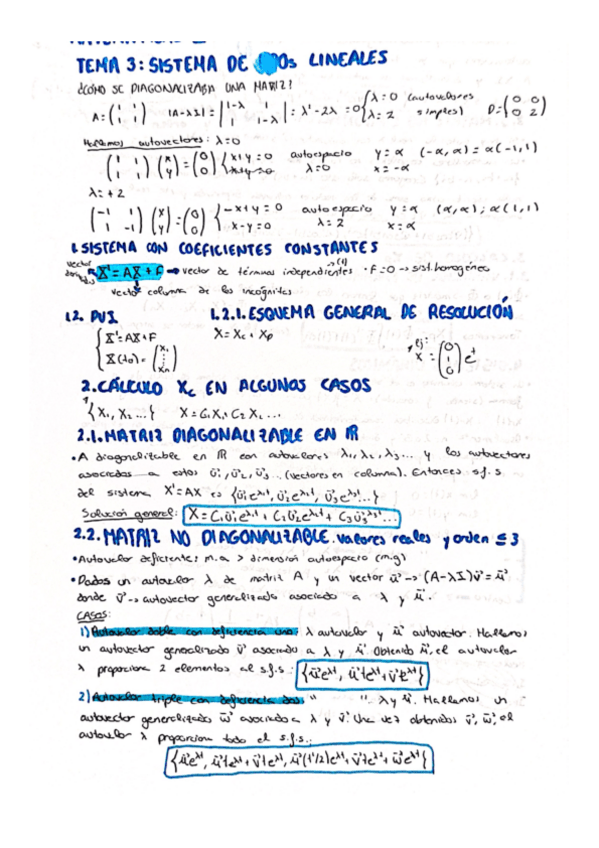 TEMA 3: SISTEMA DE Os LINEALES
¿CÓMO SE DIAGONALIZABA UNA MATRIZ?
A = (1 1; 1 1) |A-λI| = |1-λ 1; 1 1-λ| = λ² - 2λ = 0 {λ=0 (autovalores; λ=2 simples) D = (0 0; 0 2)
Hallamos autovectores: λ=0
(1 1; 1 1) (x; y) = (0; 0) {x+y=0; x+y=0 autoespacio λ=0 y=α x=-α (-α, α) = α(-1, 1)
λ=+2
(-1 1; 1 -1) (x; y) = (0; 0) {-x+y=0; x-y=0 autoespacio λ=2 y=α x=α (α, α); α(1, 1)
1. SISTEMA CON COEFICIENTES CONSTANTES
vector X' = AX + F → vector de términos independientes · F=0 → sist. homogéneo
vector columna de las incógnitas
1.2. PVI 1.2.1. ESQUEMA GENERAL DE RESOLUCIÓN
{X' = AX + F; X(t0) = (x1; ⋮; xn) X = Xc + Xp ej: X = (0; 1; 0) e^t
2. CÁLCULO Xc EN ALGUNOS CASOS
{X1, X2 ...} X = C1X1 C2X2 ...
2.1. MATRIZ DIAGONALIZABLE EN IR
• A diagonalizable en IR con autovalores λ1, λ2, λ3... y los autovectores
asociados a estos ū1, ū2, ū3 ... (vectores en columna). Entonces s.f.s.
del sistema X' = AX es {ū1e^λt, ū2e^λt, ū3e^λt...}
Solución general: X = C1ū1e^λt + C2ū2e^λt + C3ū3^λt...
2.2. MATRIZ NO DIAGONALIZABLE. valores reales y orden ≤ 3
• Autovalor deficiente: m.a > dimensión autoespacio (m.g)
• Dados un autovalor λ de matriz A y un vector ū → (A-λI)v̄ = ū
donde v̄ → autovector generalizado asociado a λ y ū.
CASOS:
1) Autovalor doble con deficiencia una: λ autovalor y ū autovector. Hallamos
un autovector generalizado v̄ asociado a λ y ū. Obtenido ū, el autovalor
λ proporciona 2 elementos al s.f.s.: {ūe^λt, ūte^λt + v̄e^λt}
2) Autovalor triple con deficiencia dos: " "- λ y ū. Hallamos un
autovector generalizado w̄ asociado a λ y v̄. Una vez obtenidos v̄, w̄, el
autovalor λ proporciona todo el s.f.s.:
{ūe^λt, ūte^λt + v̄e^λt, ū(t²/2)e^λt + v̄te^λt + w̄e^λt}